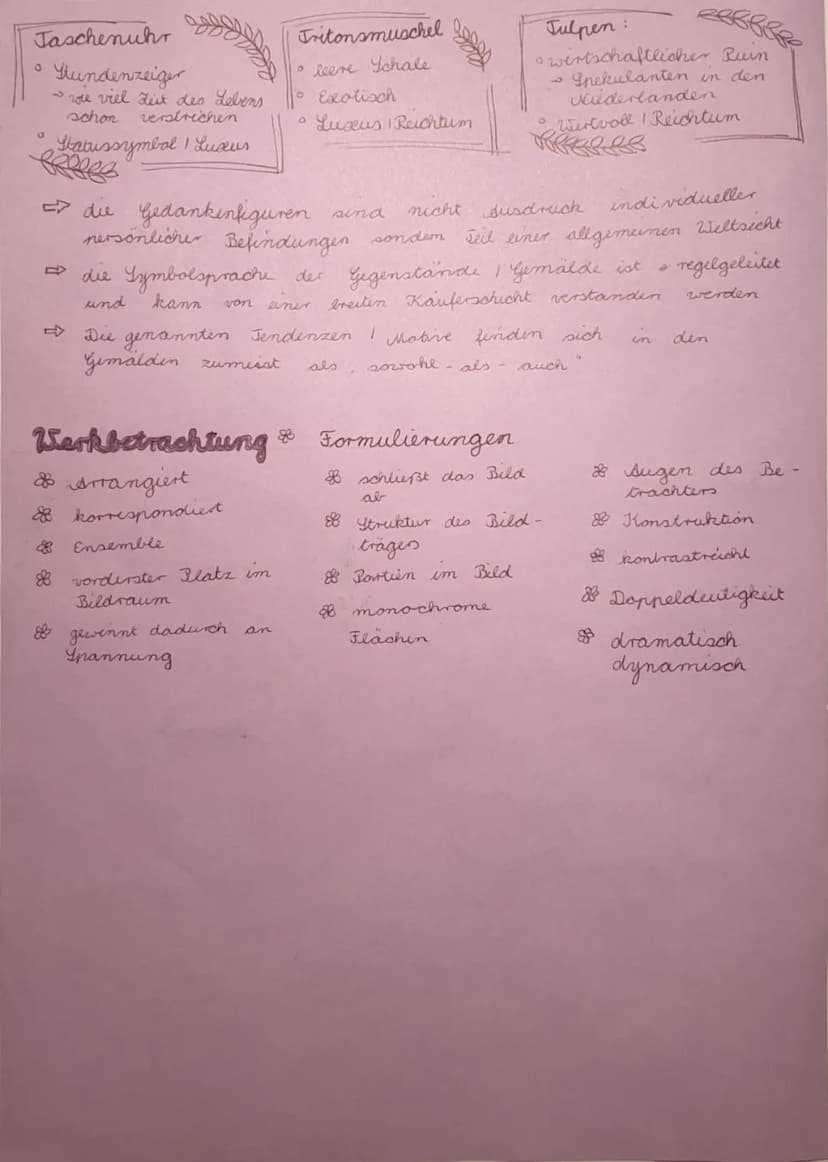 Taschenuhr
° Stundenzeiger
→ wie viel Zeit des Lebens
schon verstrichen
° Statussymbol / Luxus
Tritonsmuschel
° leere Schale
° Exotisch
° Luxus / Reichtum
Tulpen:
° wirtschaftlicher Ruin
→ Spekulanten in den
Niederlanden
° Wertvoll / Reichtum
⇒ die Gedankenfiguren sind nicht Ausdruck individueller
persönlicher Befindungen sondern Teil einer allgemeinen Weltsicht
⇒ die Symbolsprache der Gegenstände / Gemälde ist regelgeleitet
und kann von einer breiten Käuferschicht verstanden werden
⇒ Die genannten Tendenzen / Motive finden sich in den
Gemälden zumeist als „sowohl - als - auch"
Werkbetrachtung Formulierungen
arrangiert
korrespondiert
Ensemble
vorderster Platz im
Bildraum
gewinnt dadurch an
Spannung
schließt das Bild
ab
Struktur des Bild-
trägers
Partien im Bild
monochrome
Flächen
Augen des Be-
trachters
Konstruktion
kontrastreich
Doppeldeutigkeit
dramatisch
dynamisch